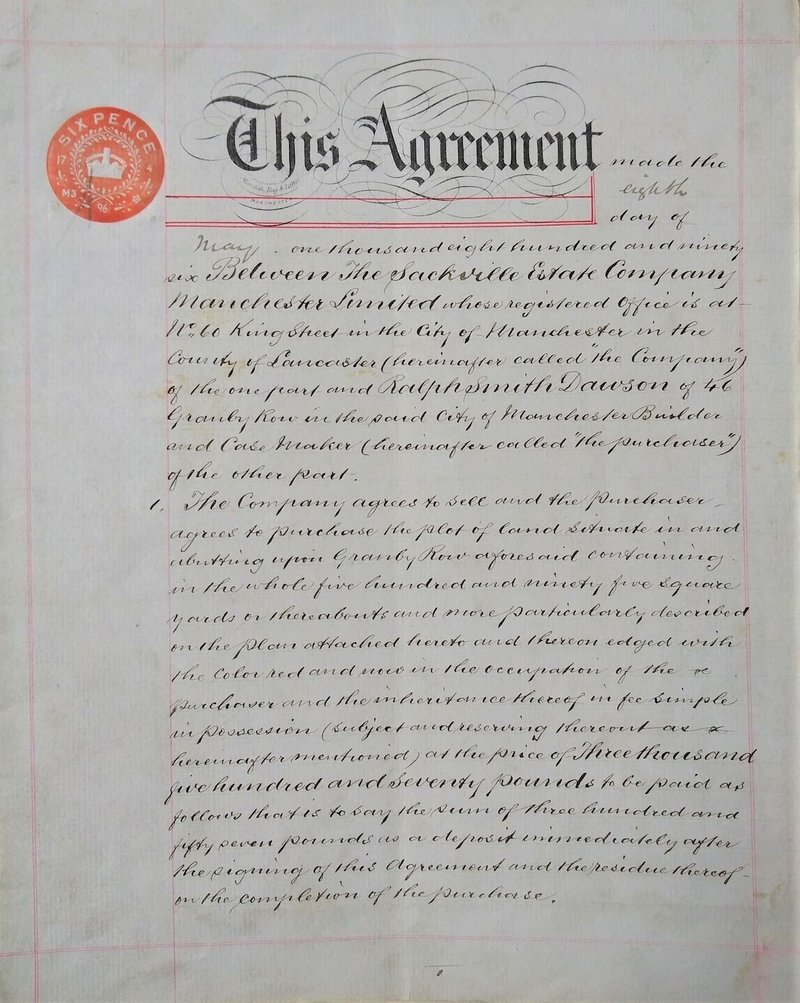 SIXPENCE
17 4
M3 96 91
This Agreement made the
eighth
day of
May one thousand eight hundred and ninety
six Between The Sackville Estate Company
Manchester Limited whose registered Office is at
No. 60 King Street in the City of Manchester in the
County of Lancaster (hereinafter called "the Company")
of the one part and Ralph Smith Dawson of 46
Granby Row in the said City of Manchester Builder
and Case Maker (hereinafter called "the purchaser")
of the other part.
1. The Company agrees to sell and the Purchaser
agrees to purchase the plot of land situate in and
abutting upon Granby Row aforesaid containing
in the whole five hundred and ninety five square
yards or thereabouts and more particularly described
on the plan attached hereto and thereon edged with
the Color red and now in the occupation of the
purchaser and the inheritance thereof in fee simple
in possession (subject and reserving thereout as
hereinafter mentioned) at the price of Three thousand
five hundred and seventy pounds to be paid as
follows that is to say the sum of three hundred and
fifty seven pounds as a deposit immediately after
the signing of this Agreement and the residue thereof
on the completion of the purchase.